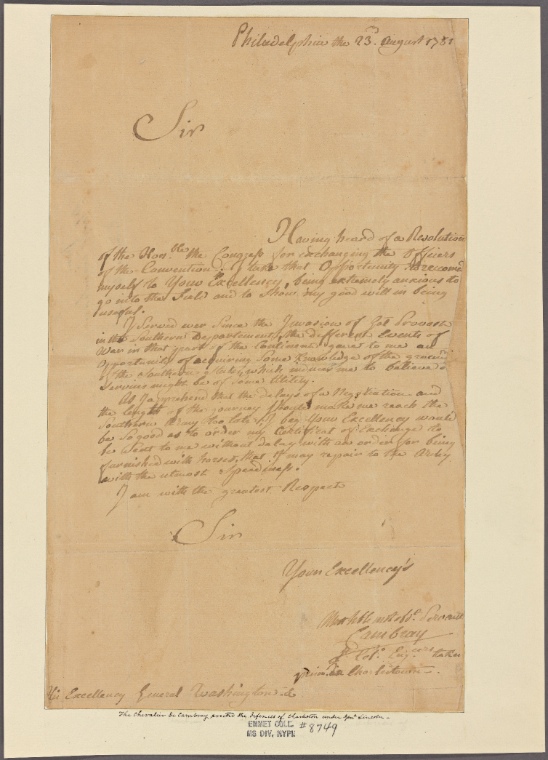 Philadelphia the 23d. August 1781
Sir
Having heard of a Resolution
of the Honble. the Congress for exchanging the officers
of the Convention, I take that Opportunity to recomd.
myself to Your Excellency, being extremely anxious to
go into the field and to Show my good will in being
usefull.
I Served ever Since the Invasion of Gal. Provost
in the Southern Department, the different Events of
War in that part of the Continent, gave to me an
Opportunity of acquiring Some Knowledge of the ground
of the Southern States, which induces me to believe my
Services might be of Some Utility.
As I apprehend that the delays of a Negotiation and
the length of the journey Should make me reach the
Southern Army too late, I beg Your Excellency would
be So good as to order my Certificat of Exchange to
be Sent to me without delay with an order for being
furnished with horses, that I may repair to the Army
with the utmost Speediness.
I am with the greatest Respect
Sir
Your Excellency's
Most hble. & most obt. Servant
Cambray
Col. Engrs. taken
prisoner Charlestown.
His Excellency General Washington &c
The Chevalier de Cambray assisted the defences of Charleston under Genl. Lincoln.
EMMET COLL. #8749
MS DIV. NYPL